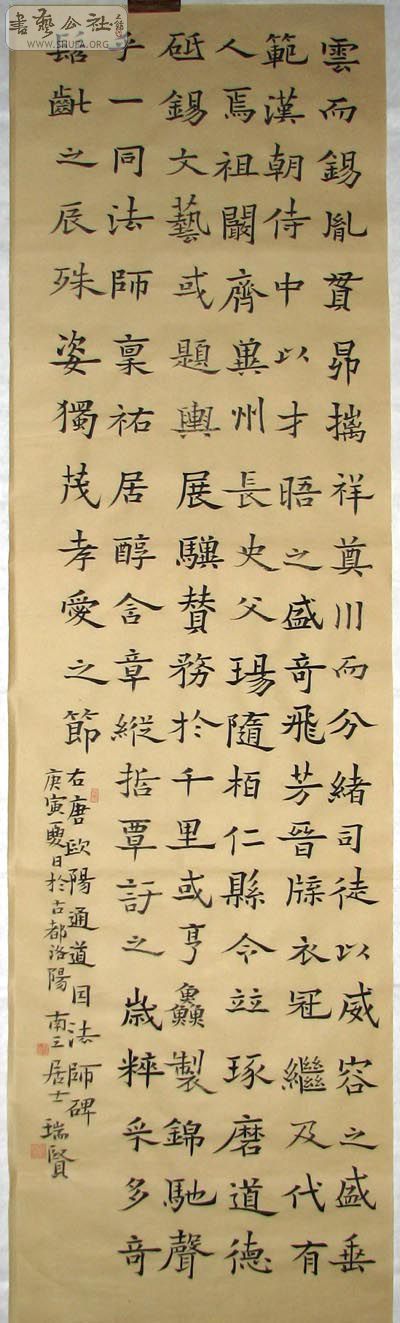 雲而錫胤貫昴摛祥奠川而分緒司徒以威容之盛垂
範漢朝侍中以才晤之盛奇飛芳晉牒衣冠繼及代有
人焉祖闕齊冀州長史父瑒隨柏仁縣令竝琢磨道德
砥錫文藝或題輿展驥贊務於千里或亨鱻製錦馳聲
乎一同法師稟祐居醇含章縱哲覃訏之歲粹采多奇
髫齔之辰殊姿獨茂孝愛之節
右唐歐陽通道因法師碑
庚寅夏日於古都洛陽 南三居士 瑞賢
書藝公社
WWW.SHUFA.ORG